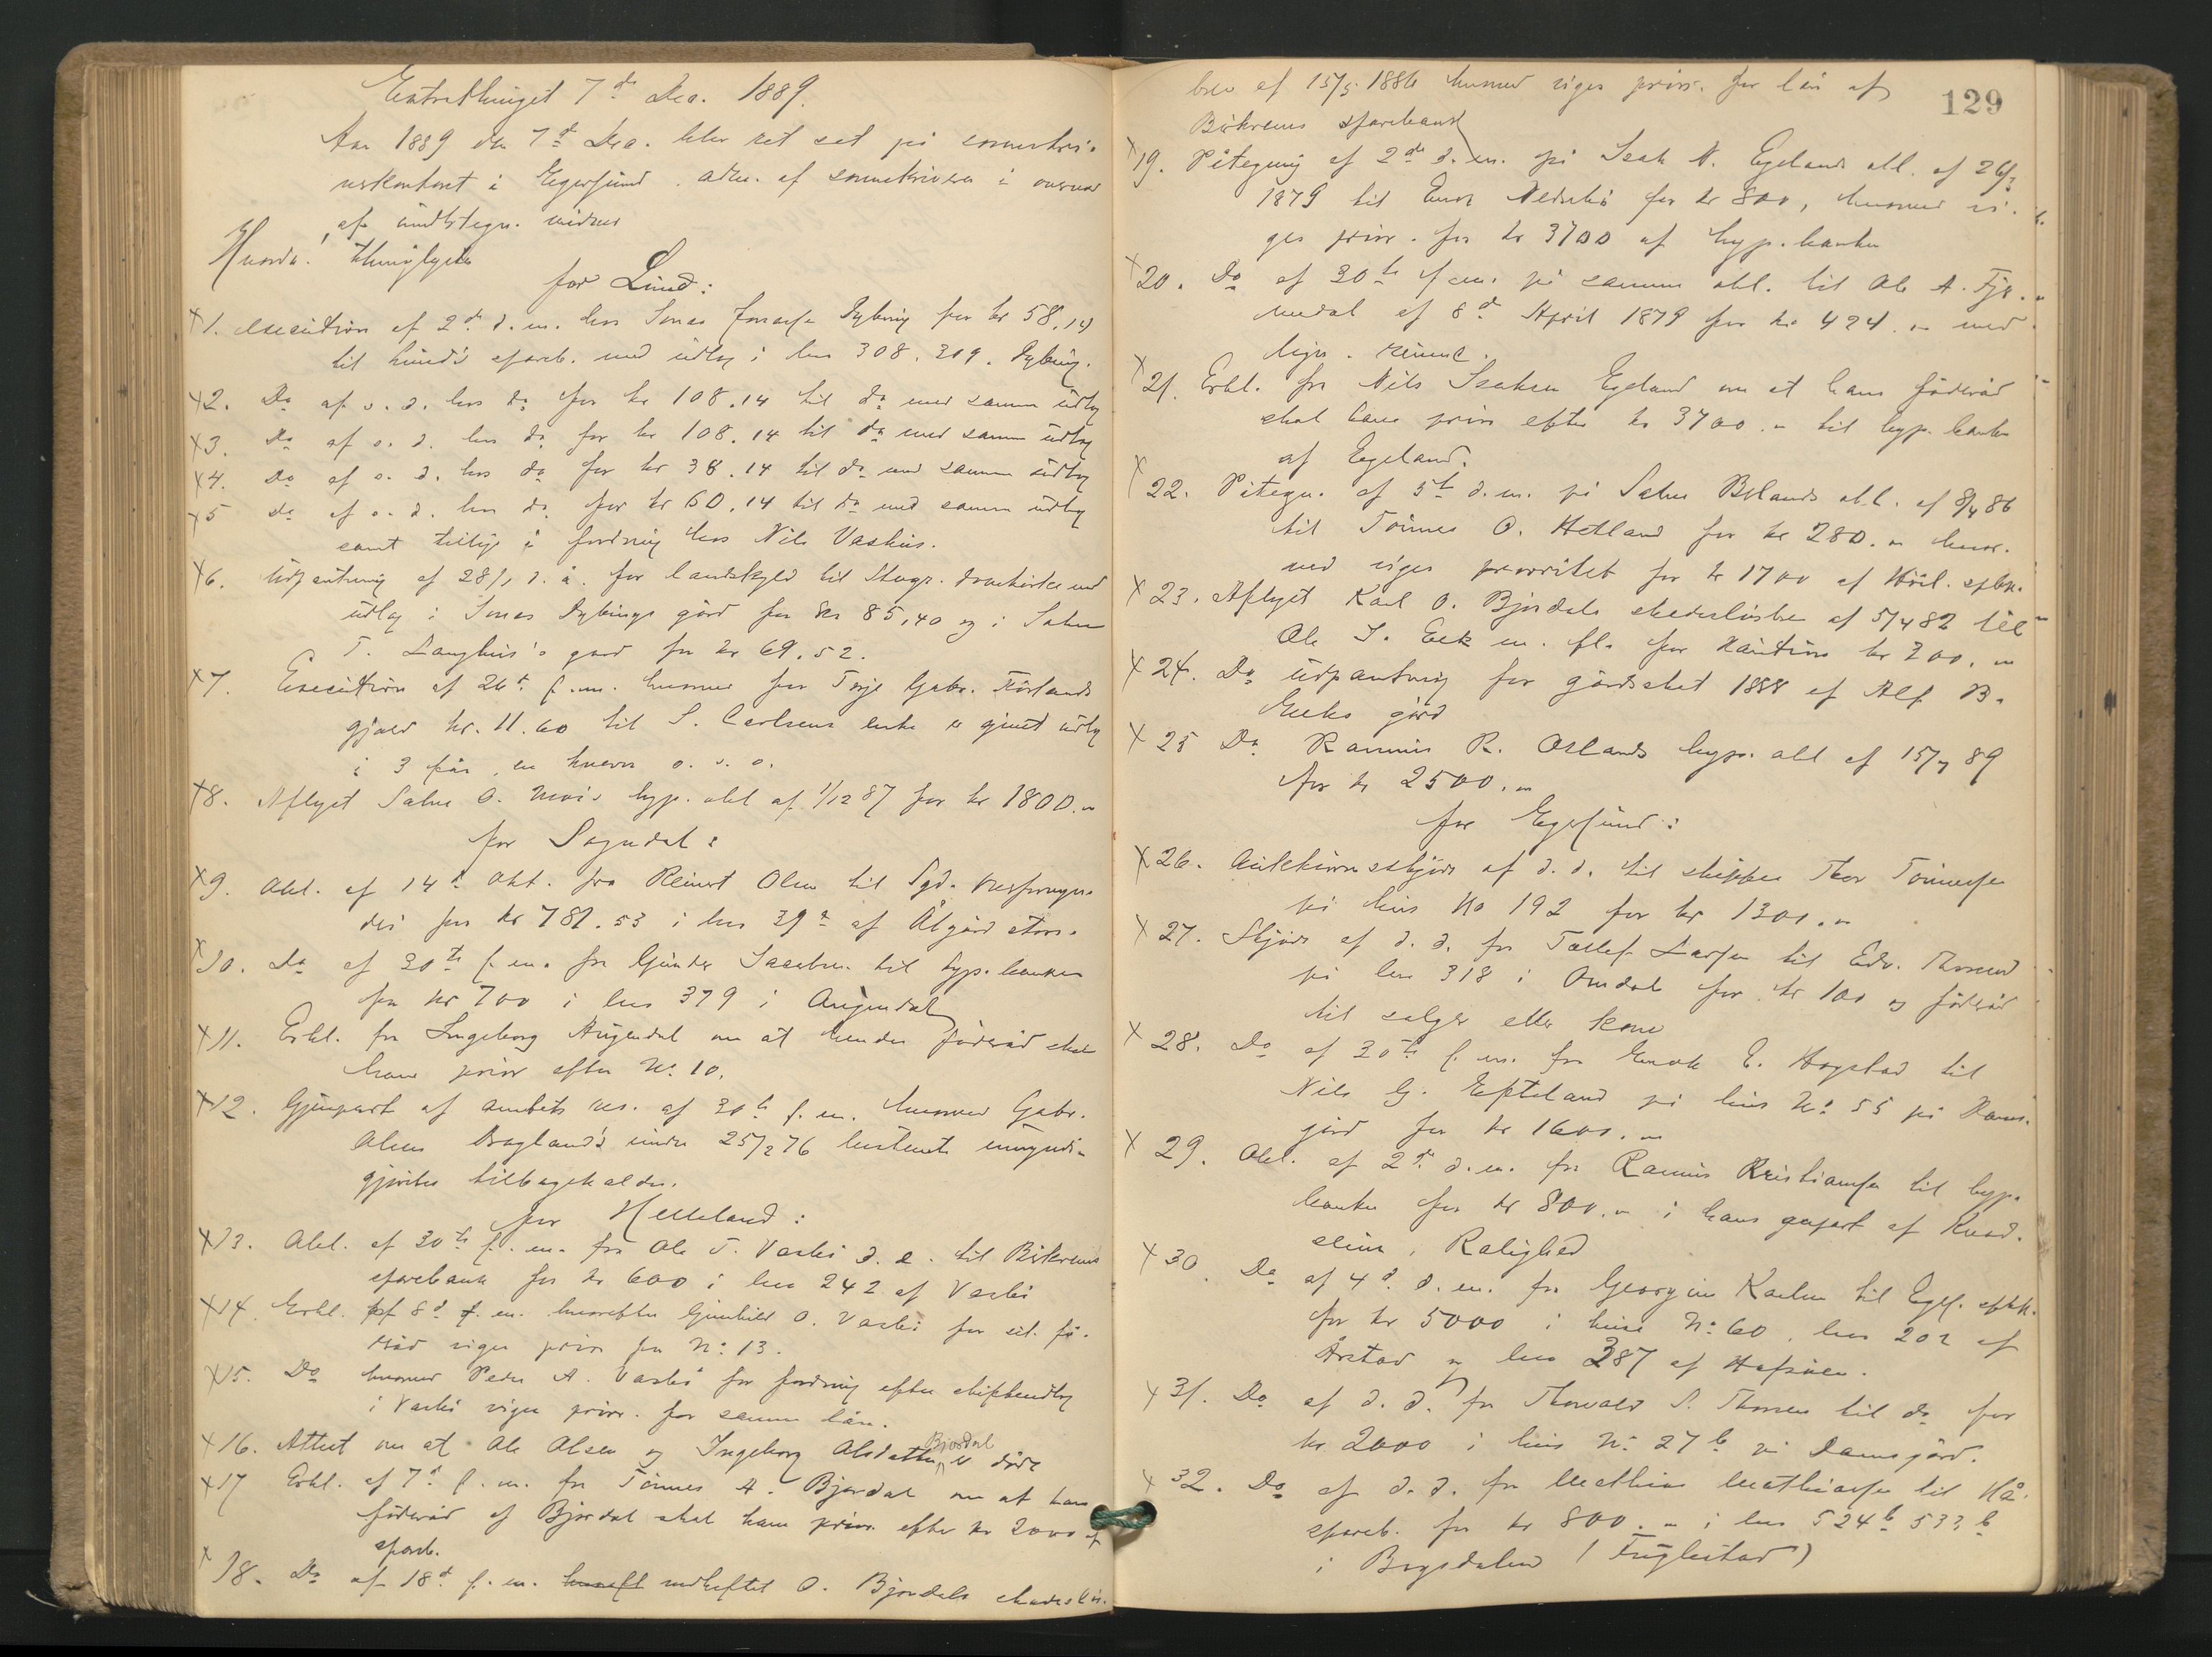 Extrathinget 7de Dec. 1889.
Aar 1889 den 7d Dec. blev ret sat på sorenskri-
verkontoret i Egersund adm. af sorenskriveren i overvær
af undertegn. vidner
Hvorda! thinglyst
for Lund:
X1. Execution af 2d d. m. hos Jonas Jonasse Dybing for kr 58,14
til Lund's spareb. med udlæg i lno 308. 309. Dybing.
X2. Do af s. d. hos do for kr 108.14 til do med samme udlæg
X3. Do af s. d. hos do for kr 108.14 til do med samme udlæg
X4. Do af s. d. hos do for kr 38.14 til do med samme udlæg
X5 Do af s. d. hos do for kr 60.14 til do med samme udlæg
samt tillige i fordring hos Nils Vashus.
X6. Udpantning af 28/ d. å. for landskyld til Stavgr. med
udlæg i Jonas Dybings gård for kr 85,40 og i Salve
T. Langhus's gard for kr 69.52.
X7. Execution af 26de f. m. hvorved for Terje Gabr. Kørlands
gjæld kr. 11.60 til S. Carlsens enke er gjort udlæg
i 3 får, en kvern o. s. v.
X8. Aflyst Salve O. Moi's hyp. obl af 1/12 87 for kr 1800.„
for Sogndal:
X9. Obl. af 14d Okt. fra Reinert Olsen til Sgd. overformyn-
deri for kr 781.53 i lno 39a af Ålgård
X10. Do af 30te f. m. fra Gunder Jacobsen til hyp. banken
for kr 700 i lno 379 i Augendal
X11. Erkl. fra Ingeborg Augendal om at hendes føderåd skal
have prior efter No 10.
X12. Gjenpart af amtets res. af 30te f. m. hvorved Gabr.
Olsen Dragland's under 25/2 76 bestemte umyndig-
gjørelse tilbagekaldes.
for Helleland:
X13. Obl. af 30te f. m. fra Ole T. Vasbø d. e. til Birkrems
sparebank for kr 600 i lno 242 af Vasbø
X14. Erkl. af 8d f. m. hvorefter Gunhild O. Vasbø for sit fø-
deråd viger prior for No 13.
X15. Do hvorved Peder A. Vasbø for fordring efter skifteudlæg
i Vasbø viger prior. for samme lån.
X16. Attest om at Ole Olsen og Ingeborg Olsdatter Bjordal er døde
X17 Erkl. af 7d f. m. fra Tønnes A. Bjordal om at hans
føderåd af Bjordal skal have prior efter kr 2000 af
spareb.
X18. Do af 18d f. m. vedheftet O. Bjordals skadesløs-
129
brev af 15/5 1886 hvorved viges prior. for lån af
Birkrems sparebank
X19. Påtegning af 2de d. m. på Isak N. Egelands obl. af 26/
1879 til Enok Nedrebø for kr 800, hvorved vi-
ges prior. for kr 3700 af hyp. banken
X20. Do af 30te f. m. på samme obl. til Ole A. Fjr
medal af 8d April 1879 for kr 424.„ med
lign. rømme.
X21. Erkl. fra Nils Isaksen Egeland om at hans føderåd
skal have prior efter kr 3700.„ til hyp. banken
af Egeland.
X22. Påtegn. af 5te d. m. på Salve Bilands obl. af 8/4 86
til Tønnes O. Hetland for kr 280.„ hvor-
ved viges prioritet for kr 1700 af spbk.
X23. Aflyst Karl O. Bjordals skadesløsbr. af 5/4 82 til
Ole J. Eek m. fl. for kaution kr 200.„
X24. Do udpantning for gårdskat 1888 af Alf B.
Eeks gård
X25 Do Rasmus R. Oslands hyp. obl af 15/7 89
for kr 2500.„
for Egersund:
X26. Auktionsskjøde af d. d. til skipper Thor Tønnesse
på hus No 192 for kr 1300.„
X27. Skjøde af d. d. fra Tollef Larsen til Edv. Thorsen
på lno 318 i Omdal for kr 100 og føderåd
til sælger eller kone
X28. Do af 30te f. m. fra Enok E. Hogstad til
Nils G. Epteland på hus No 55 på Dams-
gård for kr 1600.„
X29. Obl. af 2d d. m. fra Rasmus Kristiansen til hyp.
banken for kr 800.„ i hans gapart af
Rolighed
X30. Do af 4d d. m. fra Georgine Karlsen til Eges. spbk.
for kr 5000 i huse No 60, lno 202 af
Årstad og lno 387 af Hafsøen.
X31. Do af d. d. fra Thorvald S. Thorsen til do for
kr 2000 i hus No 27b på Damsgård.
X32. Do af d. d. fra Mathias Mathiasse til Hå
spareb. for kr 800.„ i lno 524b 533b
i Bøgedalen (Fuglestad)